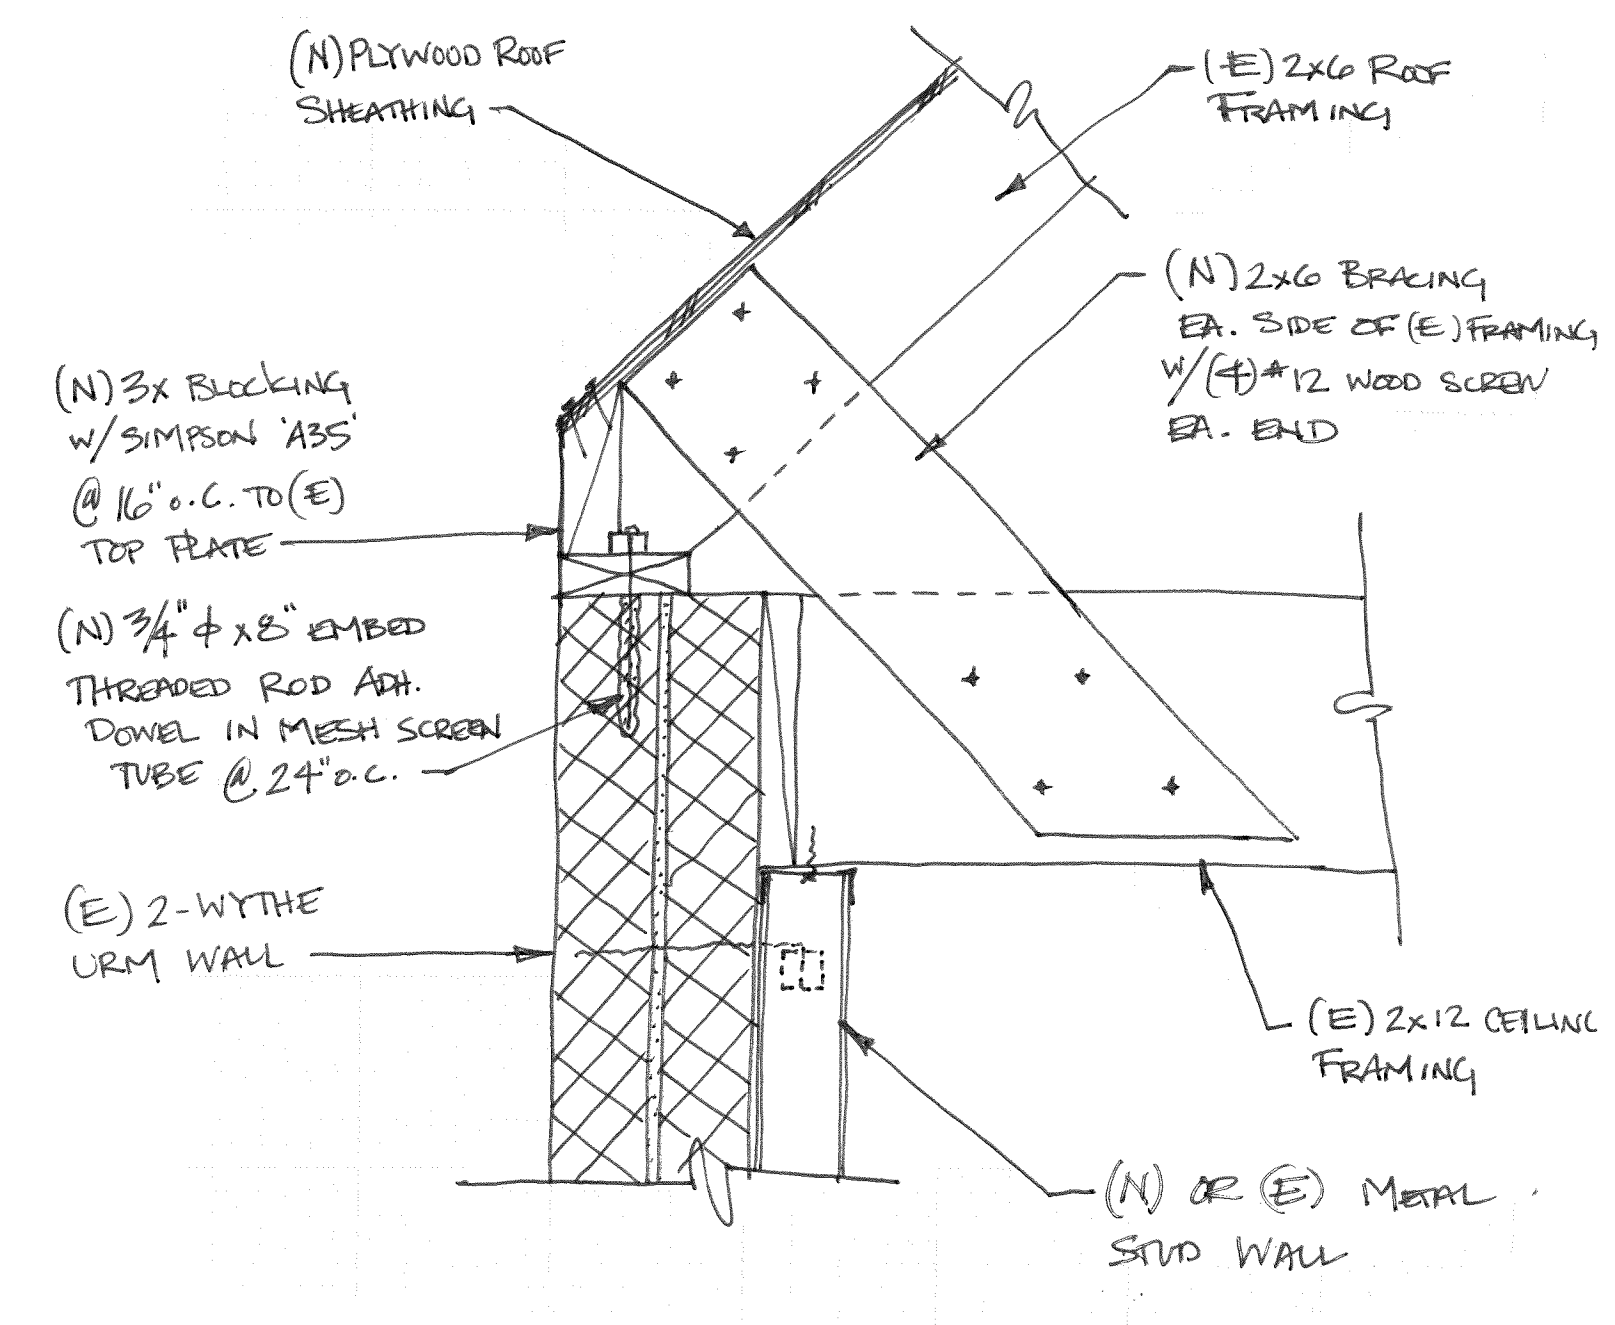 (N) PLYWOOD ROOF
SHEATHING
(E) 2x6 ROOF
FRAMING
(N) 2x6 BRACING
EA. SIDE OF (E) FRAMING
W/(4) #12 WOOD SCREW
EA. END
(N) 3x BLOCKING
W/ SIMPSON 'A35'
@ 16" O.C. TO (E)
TOP PLATE
(N) 3/4" ϕ x 8" EMBED
THREADED ROD ADH.
DOWEL IN MESH SCREEN
TUBE @ 24" O.C.
(E) 2-WYTHE
URM WALL
(E) 2x12 CEILING
FRAMING
(N) OR (E) METAL
STUD WALL